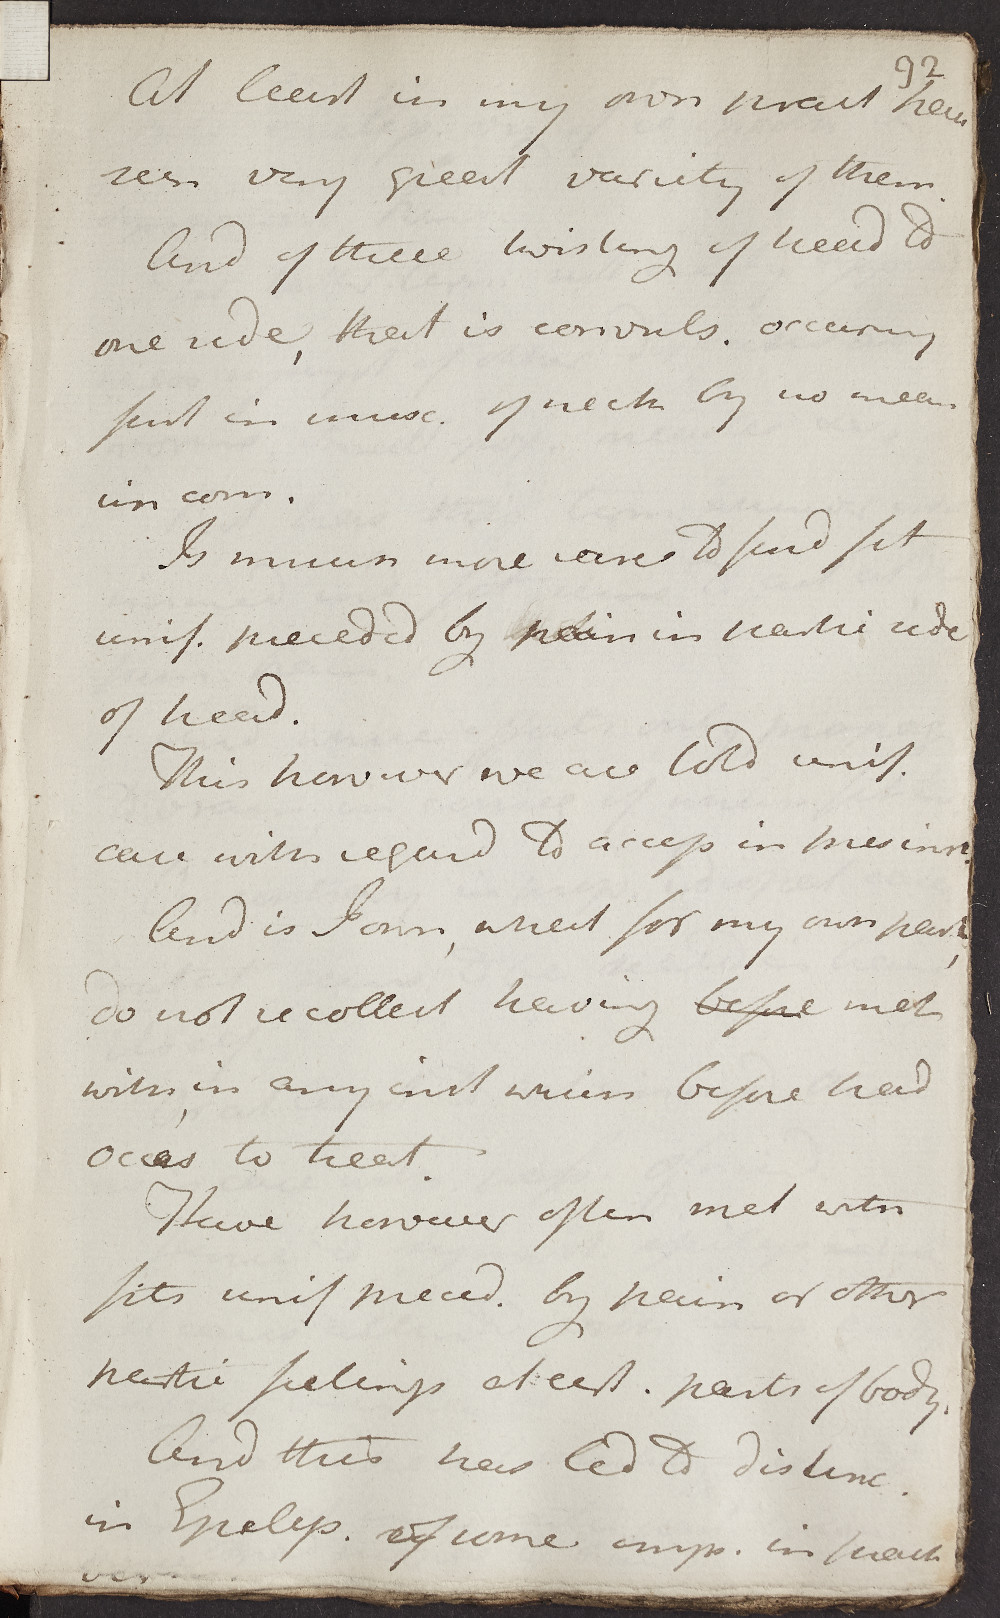 92
At least in my own pract have
seen very great variety of them.
And of these twisting of head to
one side, that is convuls. occuring
first in musc. of neck by no mean
uncom.
Is much more rare to find fit
unif. preceded by pain in partic side
of head.
This however we are told unif.
case with regard to access in pres inst.
And is I own, what for my own part,
do not recollect having before met
with, in any inst which before had
occas to treat.
Have however often met with
fits unif preced. by pain or other
partic feelings at cert. parts of body.
And this has led to distinc.
in Epelep. of some imp. in pract